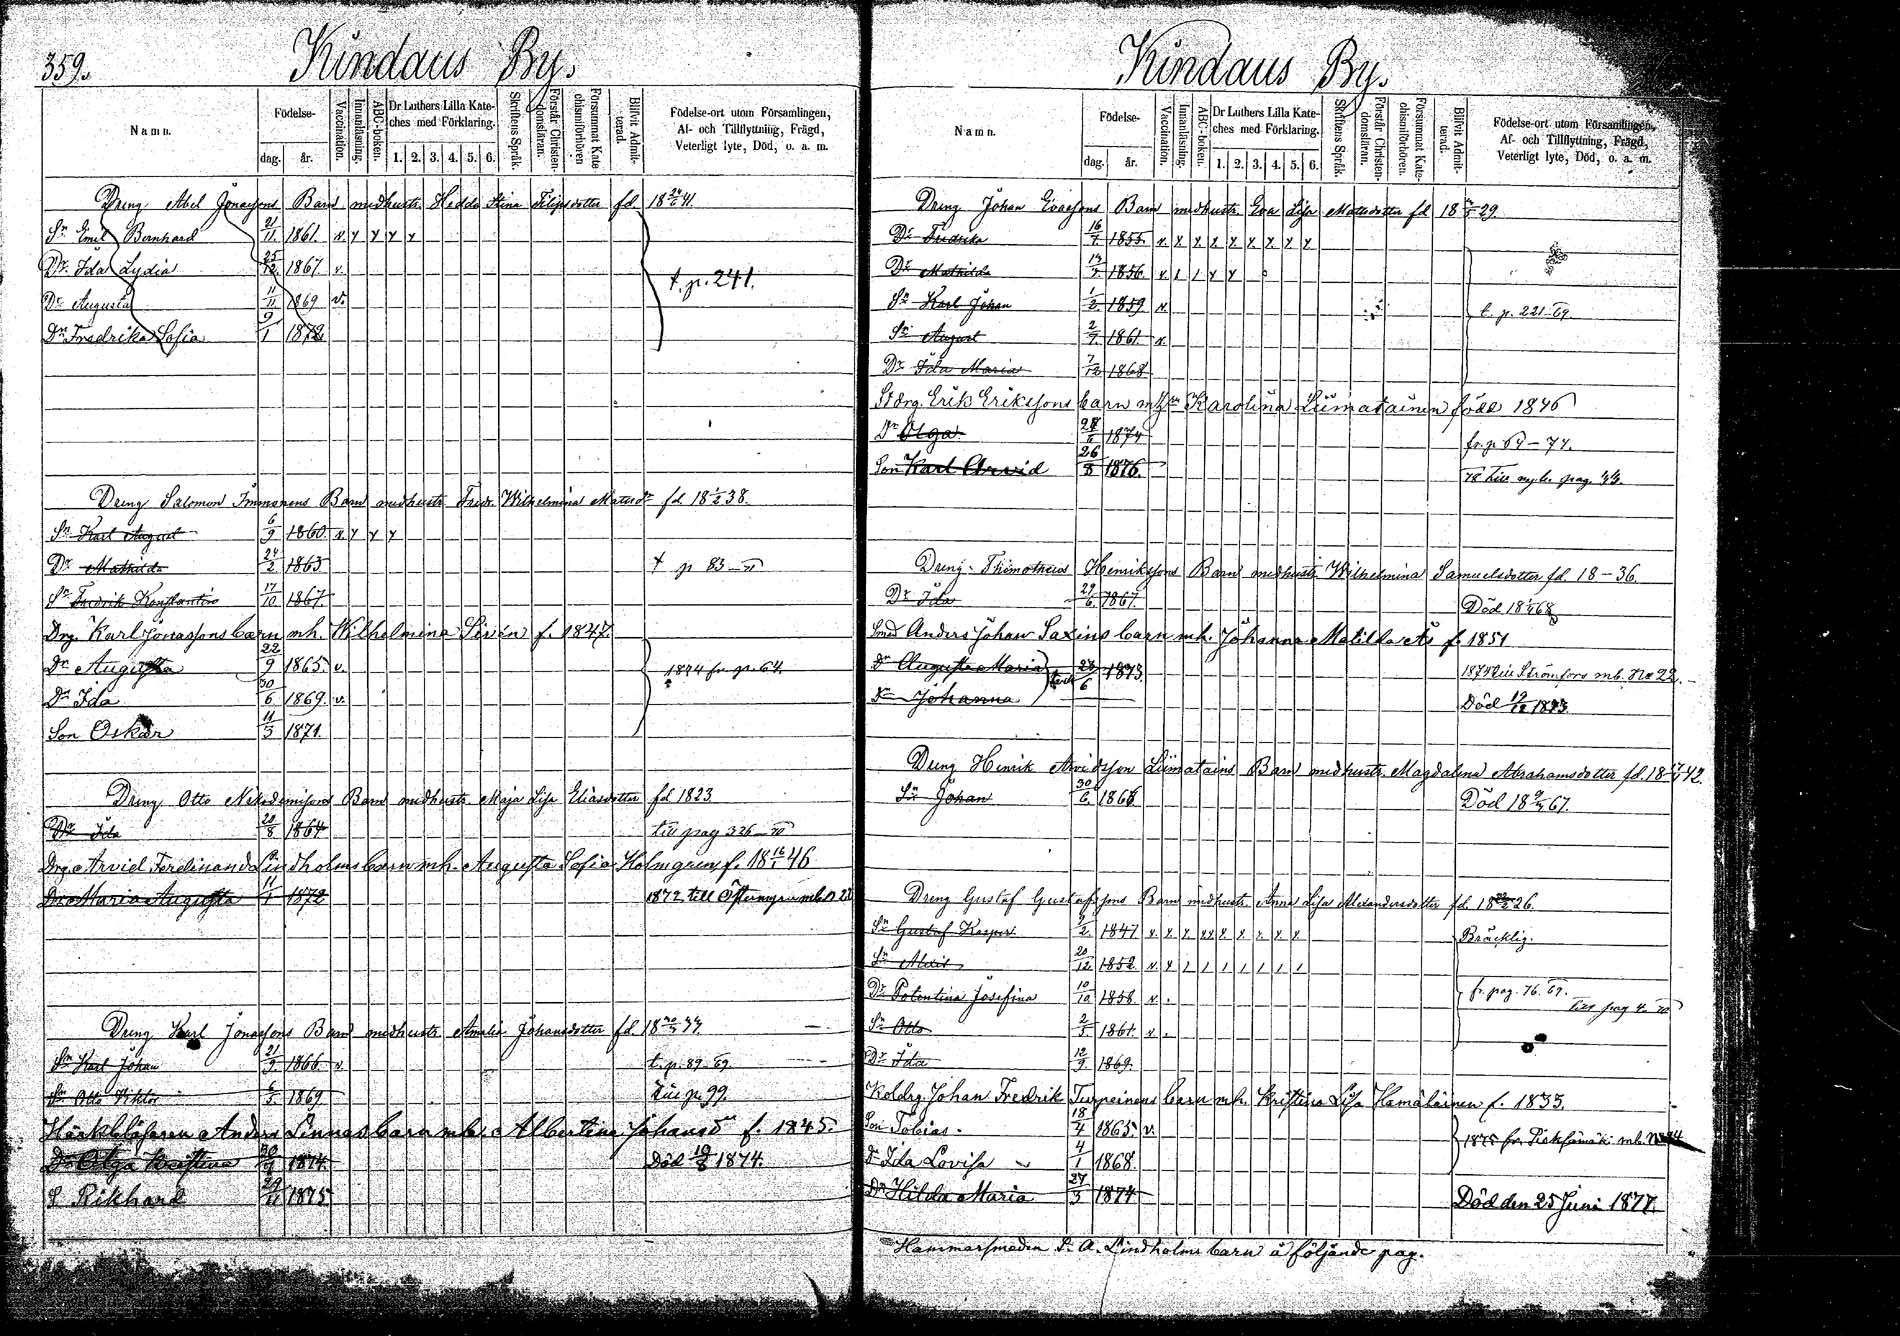 359.
Kindaus By.
Namn.
Födelse-
dag.
år.
Vaccination.
Innanläsning.
ABC-boken.
Dr Luthers Lilla Kate-
ches med Förklaring.
1. 2. 3. 4. 5. 6.
Skriftens Språk.
Förstår Christen-
domsläran.
Försummat Kate
chismiförhören
Blifvit Admit-
terad.
Födelse-ort utom Församlingen,
Af- och Tillflyttning, Frägd,
Veterligt lyte, Död, o. a. m.
Dreng Abel Jonassons Barn med hustr. Hedda Stina Filipsdotter fd 18 24/6 41.
Sn Emil Bernhard 21/11 1861. v. y y y y
Dr Ida Lydia 25/12 1867 v.
t. p. 241.
Dr Augusta 11/11 1869 v.
Dr Fredrika Sofia 9/1 1872
Dreng Salomon Immonens Barn med hustr. Fredr. Wilhelmina Matsdr fd 18 1/2 38.
Sn Karl August 6/9 1860 v. y y y
Dr Mathilda 24/2 1863
t p 83
Sn Fredrik Konstantin 17/10 1867.
Drg. Karl Jonassons barn mh. Wilhelmina Sirén f. 1847.
Dr Augusta 22/9 1865. v.
1874 fr. p. 64.
Dr Ida 30/6 1869. v.
Son Oskar 11/3 1871
Dreng Otto Nikodemisons Barn med hustr. Maja Lisa Eliasdotter fd 1823.
Dr Ida 20/8 1864 till pag 326 - 70
Drg. Arvid Ferdinand Lindholms barn mh. Augusta Sofia Holmgren f. 18 16/1 46
Dr Maria Augusta 11/1 1872 1872 till
Dreng Karl Jonassons Barn med hustr. Amalia Johansdotter fd. 18 44
Sn Karl Johan 21/9 1866. v. t. p. 89 - 69.
Sn Otto Viktor 6/5 1869 till p. 99.
Anders Linnas barn mh. Albertina Johansd f. 1845.
Dr Olga Kristina 30/1 1874. Död 19/8 1874.
S Rikhard 29/11 1875
Kindaus By.
Namn.
Födelse-
dag.
år.
Vaccination.
Innanläsning.
ABC-boken.
Dr Luthers Lilla Kate-
ches med Förklaring.
1. 2. 3. 4. 5. 6.
Skriftens Språk.
Förstår Christen-
domsläran.
Försummat Kate-
chismiförhören.
Blifvit Admit-
terad.
Födelse-ort utom Församlingen,
Af- och Tillflyttning, Frägd,
Veterligt lyte, Död, o. a. m.
Dreng Johan Evassons Barn med hustr. Eva Lisa Matsdotter fd 18 29.
Dr Fredrika 16/7 1855. v. x x x x x x x x
Dr Mathilda 1856 v 1 1 y y
Sn Karl Johan 1/2 1859 v.
t. p. 221 - 69
Sn August 2/7 1861. v.
Dr Ida Maria 7/12 1868
Stdrg. Erik Erikssons barn m h:n Karolina Liimatainen född 1846
Dr Olga 1874 fr. p 64 - 74.
Son Karl Arvid 26/8 1876. 78 till pag. 44.
Dreng Thimotheus Henrikssons Barn med hustr. Wilhelmina Samuelsdotter fd. 18-36.
Dr Ida 29/6 1867. Död 18 68
Smed Anders Johan Saxins barn mh. Johanna Matilda Ås f. 1851
Dr Augusta Maria 24/6 1873. 1874 till Strömfors mb. No 22.
Dr Johanna Död 19/12 1873
Dreng Henrik Arvidsson Liimatains Barn med hustr. Magdalena Abrahamsdotter fd. 18 42.
Sn Johan 30/6 1866 Död 18 67.
Dreng Gustaf Gustafssons Barn med hustr. Anna Lisa Alexandersdotter fd. 18 26.
Sn Gustaf Kasper 2/2 1847 v. x x xx x x x x x Bräcklig.
Sn Alexis 20/12 1852. v. y 1 1 1 1 1 1 1
Dr Potentina Josefina 10/10 1858. v.
fr. pag. 76. 69.
till pag 4 - 70
Sn Otto 2/5 1861. v.
Dr Ida 12/9 1869.
Koldrg. Johan Fredrik Turpeinens barn mh. Kristina Lisa Hämäläinen f. 1833.
Son Tobias. 18/4 1865. v.
1875 fr. Pieksämäki mb.
Dr Ida Lovisa 4/1 1868.
Dr Hilda Maria 27/3 1874 Död den 25 Juni 1877.
Hammarsmeden S. A. Lindholms barn å följande pag.